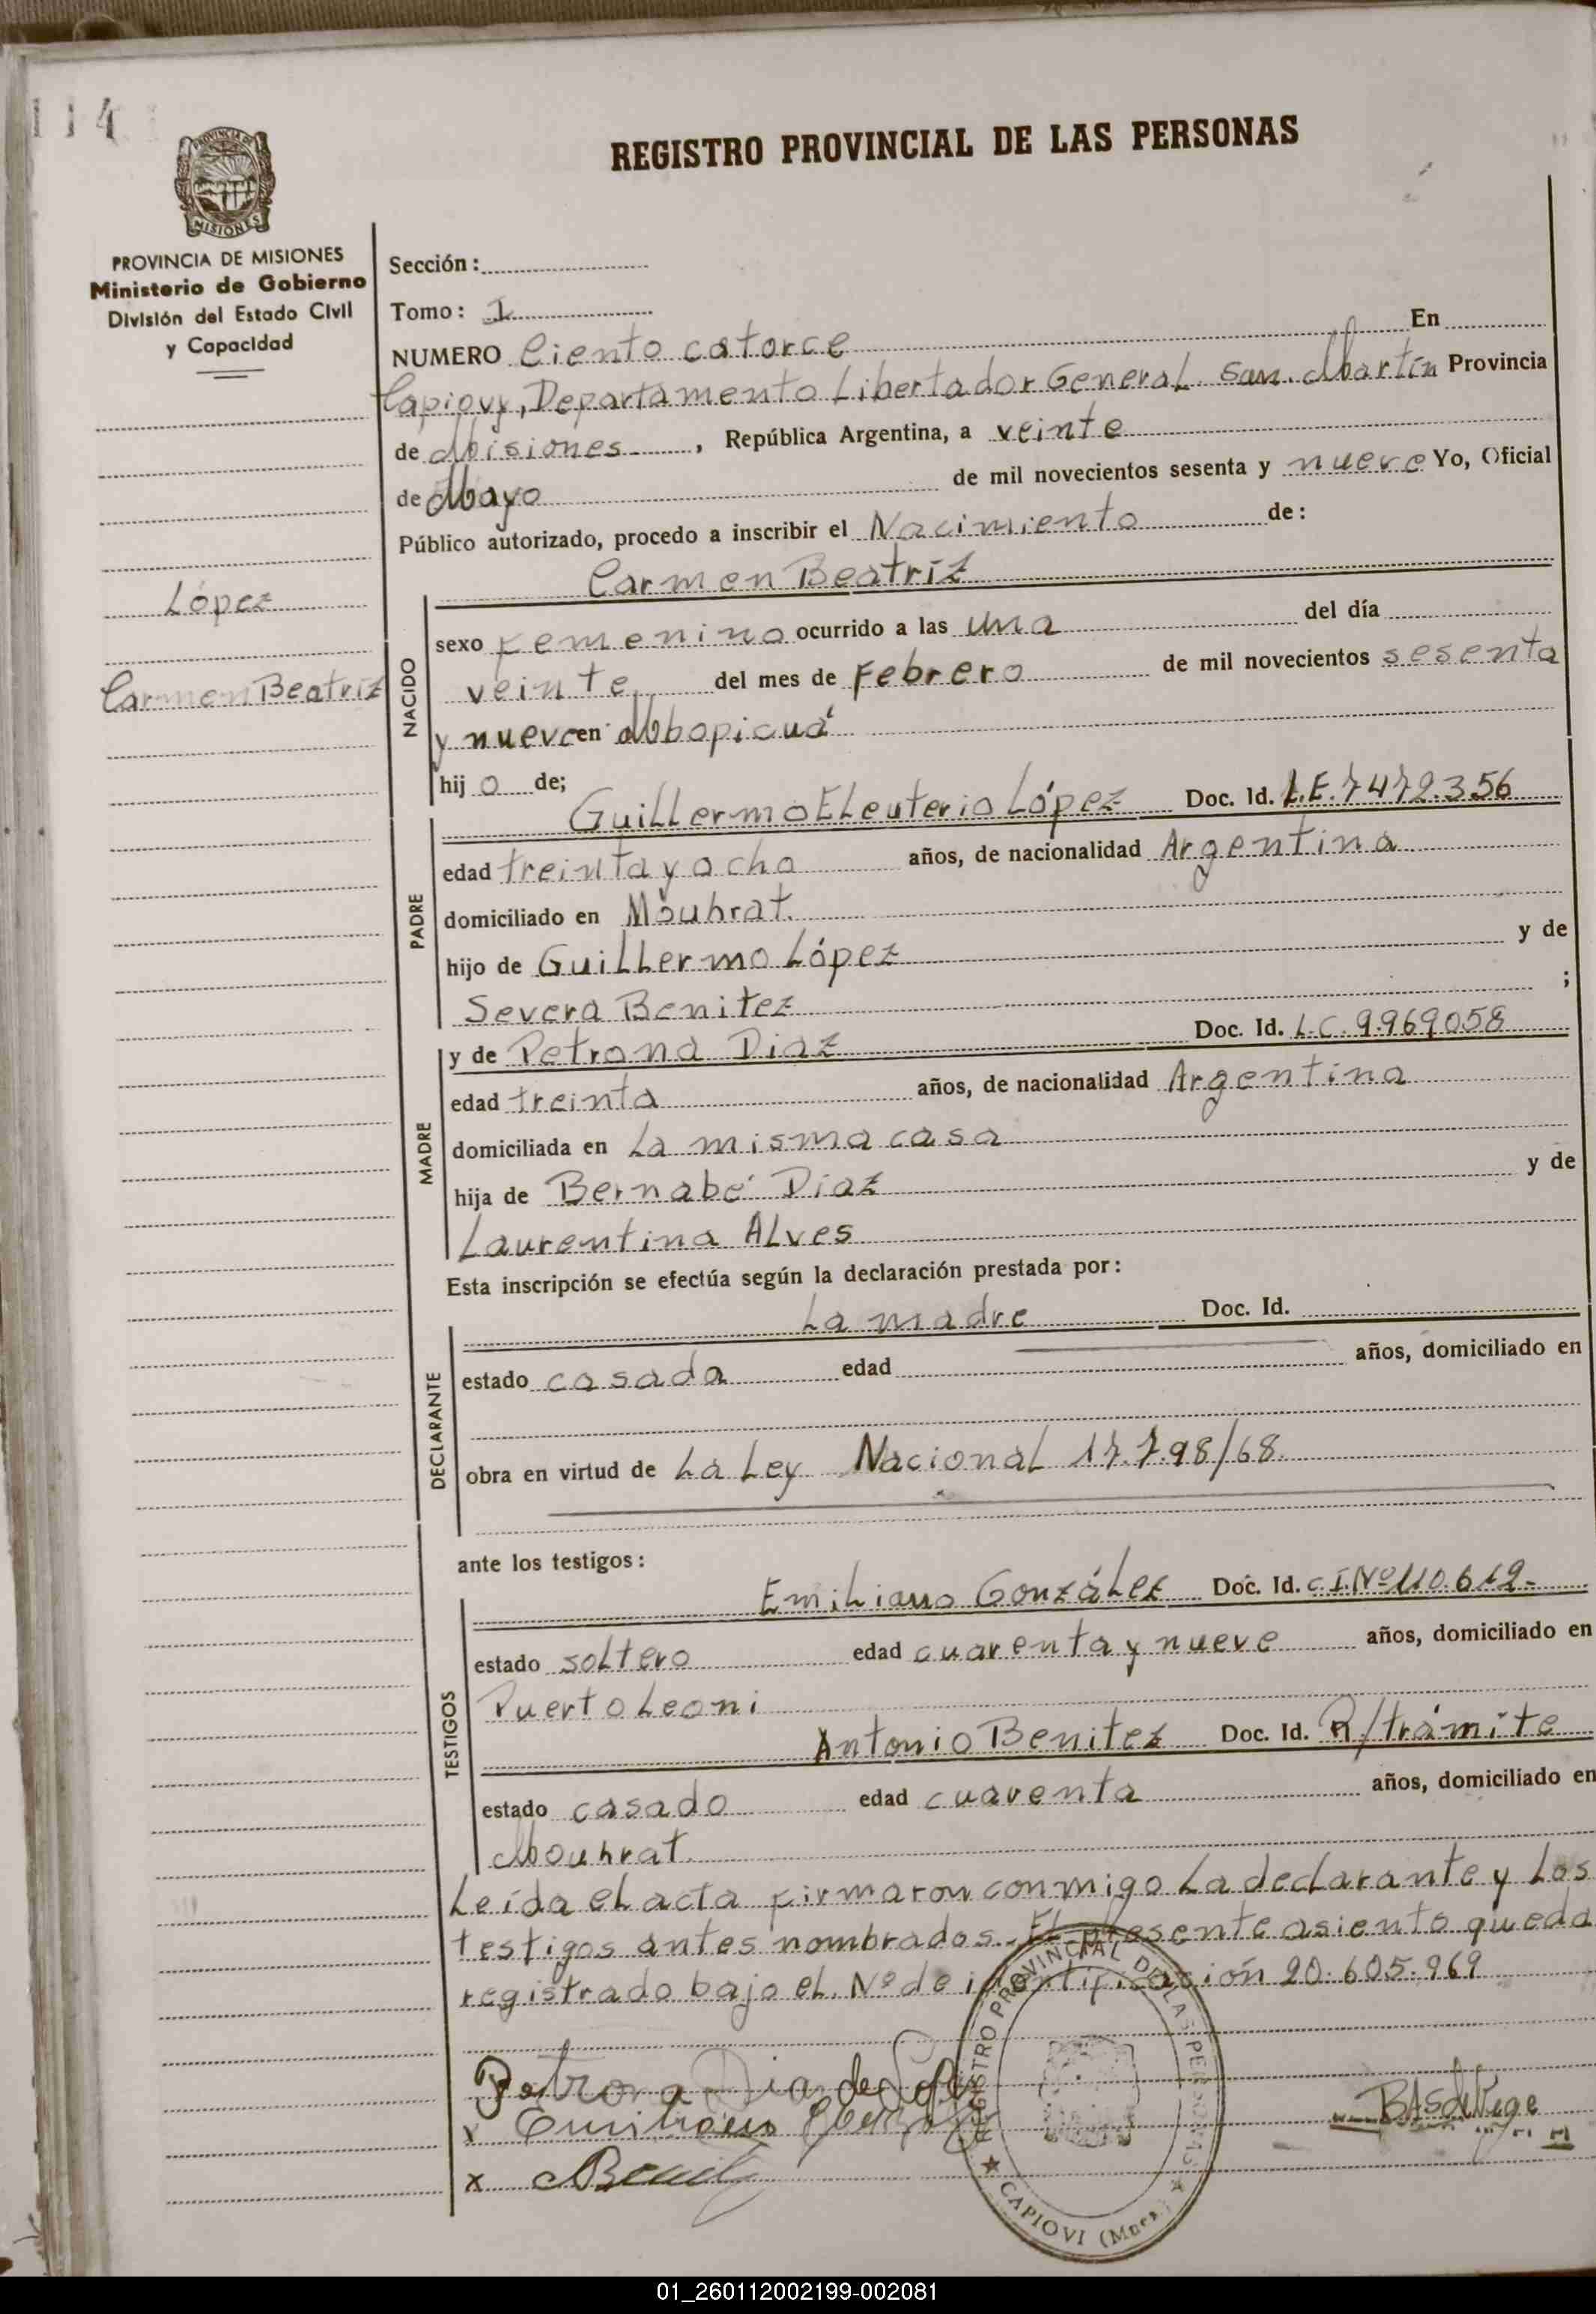 114
REGISTRO PROVINCIAL DE LAS PERSONAS
PROVINCIA DE
MISIONES
PROVINCIA DE MISIONES
Ministerio de Gobierno
División del Estado Civil
y Capacidad
López
Carmen Beatriz
Sección:
Tomo: I
NUMERO Ciento catorce En
Capiovy, Departamento Libertador General San Martín Provincia
de Misiones, República Argentina, a veinte
de Mayo de mil novecientos sesenta y nueve Yo, Oficial
Público autorizado, procedo a inscribir el Nacimiento de:
Carmen Beatriz
NACIDO
sexo Femenino ocurrido a las una del día
veinte del mes de Febrero de mil novecientos sesenta
y nueve en Mbopicuá
hij o de;
PADRE
Guillermo Eleuterio López Doc. Id. L.E. 7472.356
edad treinta y ocho años, de nacionalidad Argentina
domiciliado en Mouhrat.
hijo de Guillermo López y de
Severa Benitez ;
MADRE
y de Petrona Diaz Doc. Id. L.C. 9.969058
edad treinta años, de nacionalidad Argentina
domiciliada en La misma casa
hija de Bernabé Diaz y de
Laurentina Alves
Esta inscripción se efectúa según la declaración prestada por:
DECLARANTE
La madre Doc. Id.
estado casada edad años, domiciliado en
obra en virtud de La Ley Nacional 17.798/68.
ante los testigos:
TESTIGOS
Emiliano González Doc. Id. C.I.Nº 110.612.
estado soltero edad cuarenta y nueve años, domiciliado en
Puerto Leoni
Antonio Benitez Doc. Id. R/trámite
estado casado edad cuarenta años, domiciliado en
Mouhrat.
Leída el acta firmaron conmigo La declarante y Los
testigos antes nombrados. El presente asiento queda
registrado bajo el Nº de identificación 20.605.969
Petrona Dian de
x Emiliano
x
REGISTRO PROVINCIAL DE LAS PERSONAS
CAPIOVI (Mnes.)
01_260112002199-002081